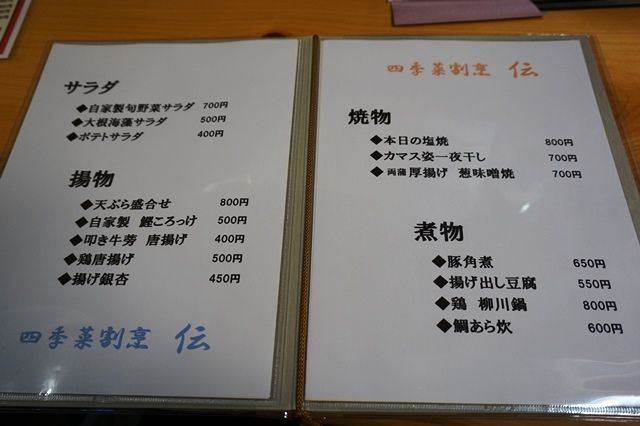 サラダ
◆自家製旬野菜サラダ 700円
◆大根海藻サラダ 500円
◆ポテトサラダ 400円
揚物
◆天ぷら盛合せ 800円
◆自家製 鰹ころっけ 500円
◆叩き牛蒡 唐揚げ 400円
◆鶏唐揚げ 500円
◆揚げ銀杏 450円
四季菜割烹 伝
四季菜割烹 伝
焼物
◆本日の塩焼 800円
◆カマス姿一夜干し 700円
◆両蒲 厚揚げ 葱味噌焼 700円
煮物
◆豚角煮 650円
◆揚げ出し豆腐 550円
◆鶏 柳川鍋 800円
◆鯛あら炊 600円